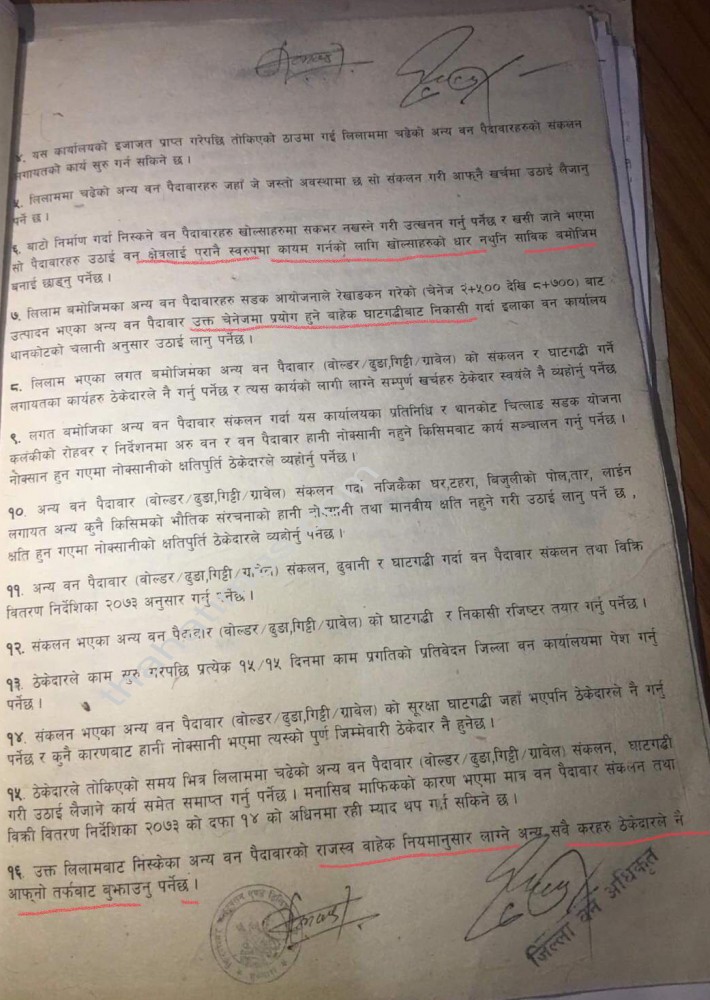 ४. यस कार्यालयको इजाजत प्राप्त गरेपछि तोकिएको ठाउमा गई लिलाममा चढेको अन्य वन पैदावारहरुको संकलन
लगायतको कार्य सुरु गर्न सकिने छ ।
५. लिलाममा चढेको अन्य वन पैदावारहरु जहाँ जे जस्तो अवस्थामा छ सो संकलन गरी आफ्नै खर्चमा उठाई लैजानु
पर्ने छ ।
६. बाटो निर्माण गर्दा निस्कने वन पैदावारहरु खोल्साहरुमा सकभर नखस्ने गरी उत्खनन गर्नु पर्नेछ र खसी जाने भएमा
सो पैदावारहरु उठाई वन क्षेत्रलाई पुरानै स्वरुपमा कायम गर्नको लागि खोल्साहरुको धार नथुनि साविक बमोजिम
बनाई छाड्नु पर्नेछ ।
७. लिलाम बमोजिमका अन्य वन पैदावारहरु सडक आयोजनाले रेखाङकन गरेको (चेनेज २+५०० देखि ८+७००) बाट
उत्पादन भएका अन्य वन पैदावार उक्त चेनेजमा प्रयोग हुने बाहेक घाटगद्दीबाट निकासी गर्दा इलाका वन कार्यालय
थानकोटको चलानी अनुसार उठाई लानु पर्नेछ ।
८. लिलाम भएका लगत बमोजिमका अन्य वन पैदावार (वोल्डर/ढुडा,गिट्टी/ग्रावेल) को संकलन र घाटगद्दी गर्ने
लगायतका कार्यहरु ठेकेदारले नै गर्नु पर्नेछ र त्यस कार्यको लागी लाग्ने सम्पुर्ण खर्चहरु ठेकेदार स्वयंले नै व्यहोर्नु पर्नेछ
९. लगत बमोजिका अन्य वन पैदावार संकलन गर्दा यस कार्यालयका प्रतिनिधि र थानकोट चित्लाङ सडक योजना
कलंकीको रोहवर र निर्देशनमा अरु वन र वन पैदावार हानी नोक्सानी नहुने किसिमबाट कार्य सञ्चालन गर्नु पर्नेछ ।
नोक्सान हुन गएमा नोक्सानीको क्षतिपुर्ति ठेकेदारले व्यहोर्नु पर्नेछ ।
१०. अन्य वन पैदावार (वोल्डर/ढुडा,गिट्टी/ग्रावेल) संकलन गर्दा नजिकैका घर,टहरा, विजुलीको पोल,तार, लाईन
लगायत अन्य कुनै किसिमको भौतिक संरचनाको हानी नोक्सानी तथा मानवीय क्षति नहुने गरी उठाई लानु पर्ने छ ,
क्षति हुन गएमा नोक्सानीको क्षतिपुर्ति ठेकेदारले व्यहोर्नु पर्नेछ ।
११. अन्य वन पैदावार (वोल्डर/ढुडा,गिट्टी/ग्रावेल) संकलन, ढुवानी र घाटगद्धी गर्दा वन पैदावार संकलन तथा विक्रि
वितरण निर्देशिका २०७३ अनुसार गर्नु पर्नेछ ।
१२. संकलन भएका अन्य वन पैदावार (वोल्डर/ढुडा,गिट्टी/ग्रावेल) को घाटगद्धी र निकासी रजिष्टर तयार गर्नु पर्नेछ ।
१३. ठेकेदारले काम सुरु गरपछि प्रत्येक १५/१५ दिनमा काम प्रगतिको प्रतिवेदन जिल्ला वन कार्यालयमा पेश गर्नु
पर्नेछ ।
१४. संकलन भएका अन्य वन पैदावार (वोल्डर/ढुडा,गिट्टी/ग्रावेल) को सुरक्षा घाटगद्धी जहाँ भएपनि ठेकेदारले नै गर्नु
पर्नेछ र कुनै कारणबाट हानी नोक्सानी भएमा त्यस्को पुर्ण जिम्मेवारी ठेकेदार नै हुनेछ ।
१५. ठेकेदारले तोकिएको समय भित्र लिलाममा चढेको अन्य वन पैदावार (वोल्डर/ढुडा,गिट्टी/ग्रावेल) संकलन, घाटगद्धी
गरी उठाई लैजाने कार्य समेत समाप्त गर्नु पर्नेछ । मनासिब माफिकको कारण भएमा मात्र वन पैदावार संकलन तथा
विक्री वितरण निर्देशिका २०७३ को दफा १४ को अधिनमा रही म्याद थप गर्न सकिने छ ।
१६. उक्त लिलामबाट निस्केका अन्य वन पैदावारको राजस्व बाहेक नियमानुसार लाग्ने अन्य सवै करहरु ठेकेदारले नै
आफ्नो तर्फबाट बुझाउनु पर्नेछ ।
जिल्ला वन अधिकृत